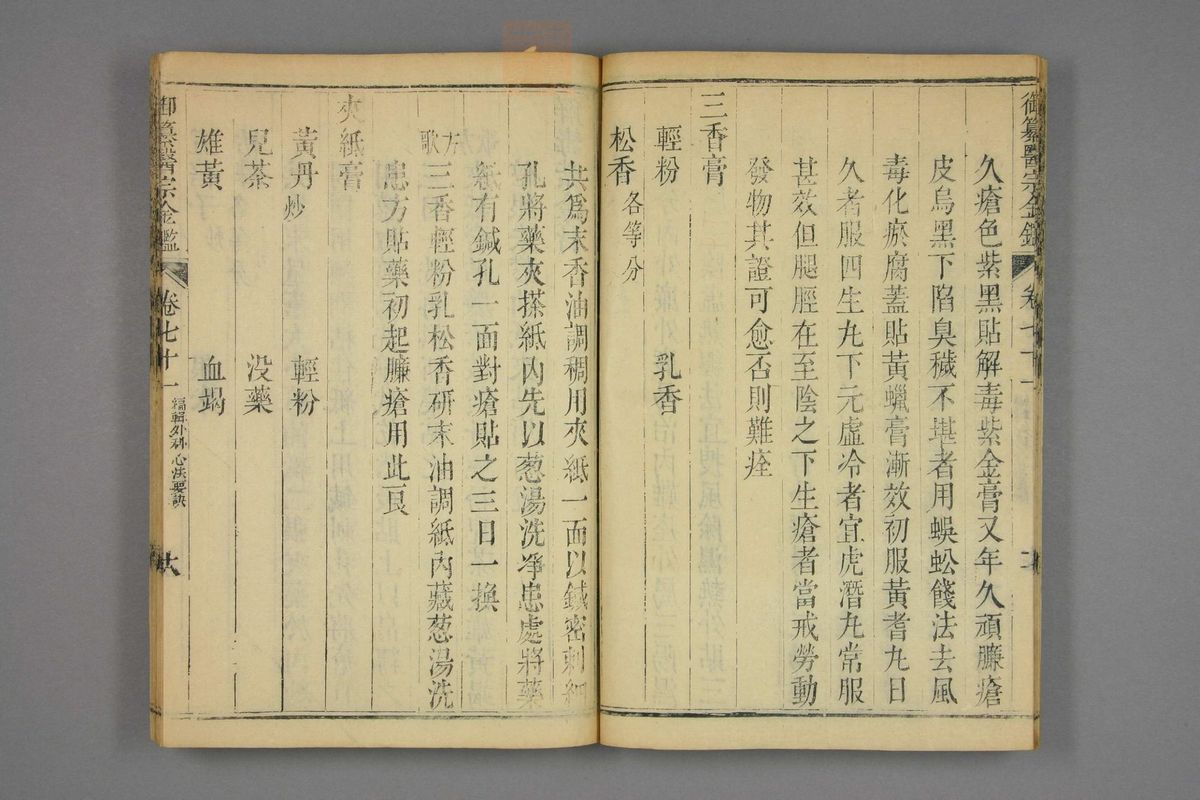 御纂醫宗金鑑
卷七十一
久瘡色紫黑貼解毒紫金膏又年久頑臁瘡
皮烏黑下陷臭穢不堪者用蜈蚣餞法去風
毒化瘀腐蓋貼黃蠟膏漸效初服黃耆丸日
久者服四生丸下元虛冷者宜虎潛丸常服
甚效但腿脛在至陰之下生瘡者當戒勞動
發物其證可愈否則難痊
三香膏
輕粉 乳香
松香各等分
共爲末香油調稠用夾紙一面以鍼密刺細
孔將藥夾搽紙內先以葱湯洗凈患處將藥
紙有鍼孔一面對瘡貼之三日一換
方歌 三香輕粉乳松香研末油調紙內藏葱湯洗
患方貼藥初起臁瘡用此良
夾紙膏
黃丹炒 輕粉
兒茶 没藥
雄黃 血竭
御纂醫宗金鑑 卷七十一 編輯外科心法要訣